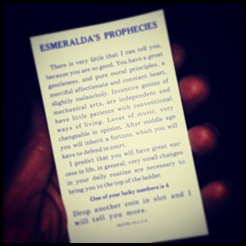 ESMERALDA'S PROPHECIES
There is very little that I can tell you,
because you are so good. You have a great
gentleness, and pure moral principles, a
merciful affectionate and constant heart,
slightly melancholy. Inventive genius of
mechanical arts, are independent and
have little patience with conventional
ways of living. Lover of music, very
changeable in opinion. After middle age
you will inherit a fortune, which you will
have to defend in court.
I predict that you will have great suc-
cess in life, in general, very small changes
in your daily routine are necessary to
bring you to the top of the ladder.
One of your lucky numbers is 4
Drop another coin in slot and I
will tell you more.